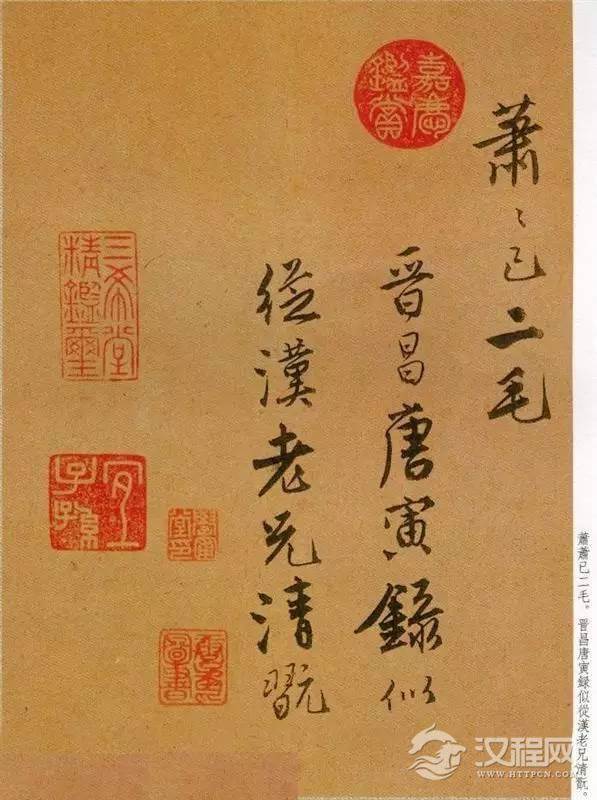 蕭〻已二毛
晋昌唐寅録似
從漢老兄清翫
嘉慶鑑賞
三希堂精鑑璽
宜子孫
蕭蕭已二毛。晉昌唐寅録似從漢老兄清翫。
汉程网
WWW.HTTPCN.COM